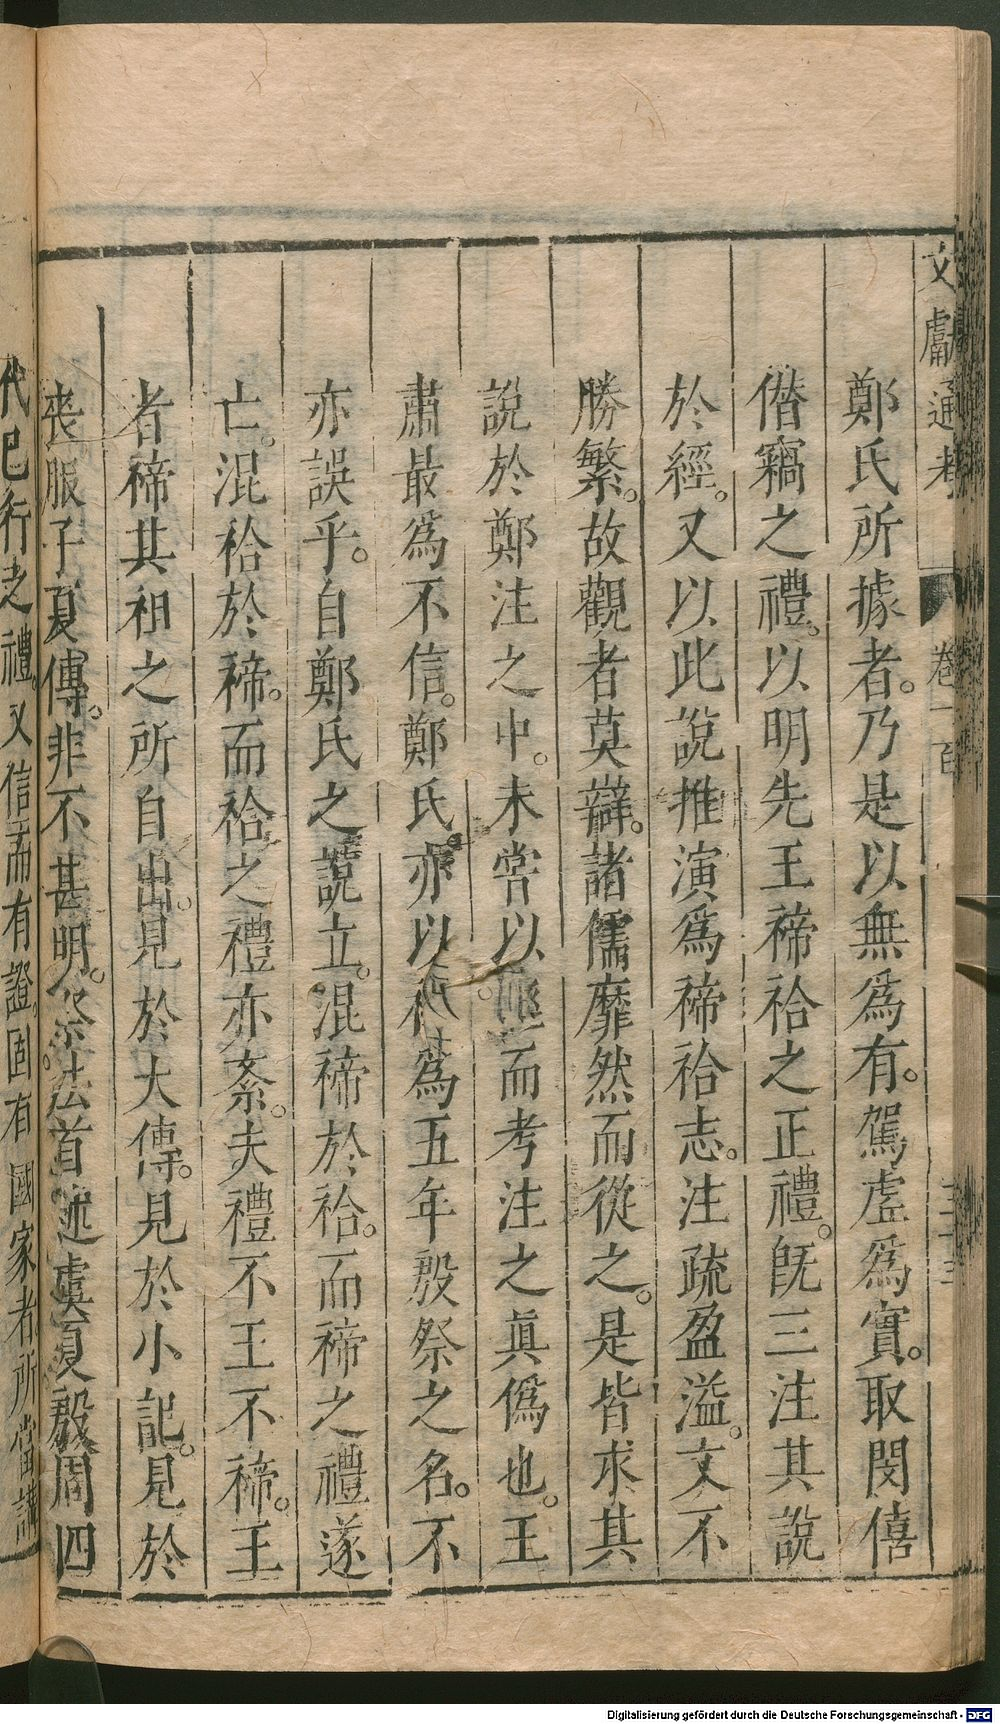 文獻通考 卷一百
鄭氏所據者。乃是以無爲有。駕虛爲實。取閔僖
僭竊之禮。以明先王禘祫之正禮。旣三注其說
於經。又以此說推演爲禘祫志。注疏盈溢。文不
勝繁。故觀者莫辯。諸儒靡然而從之。是皆求其
說於鄭注之中。未嘗以經而考注之眞僞也。王
肅最爲不信。鄭氏亦以禘爲五年殷祭之名。不
亦誤乎。自鄭氏之說立。混禘於祫。而禘之禮遂
亡。混祫於禘。而祫之禮亦紊。夫禮不王不禘。王
者禘其祖之所自出。見於大傳。見於小記。見於
喪服子夏傳。非不甚明。祭法首述虞夏殷周四
代已行之禮。又信而有證。固有國家者所當講
Digitalisierung gefördert durch die Deutsche Forschungsgemeinschaft - DFG